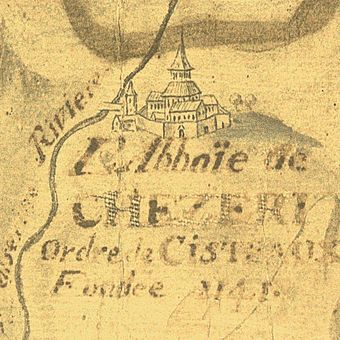 Riviere
L'Abbaïe de
CHEZERI
Ordre de CISTEAUX
Fondée 1141.